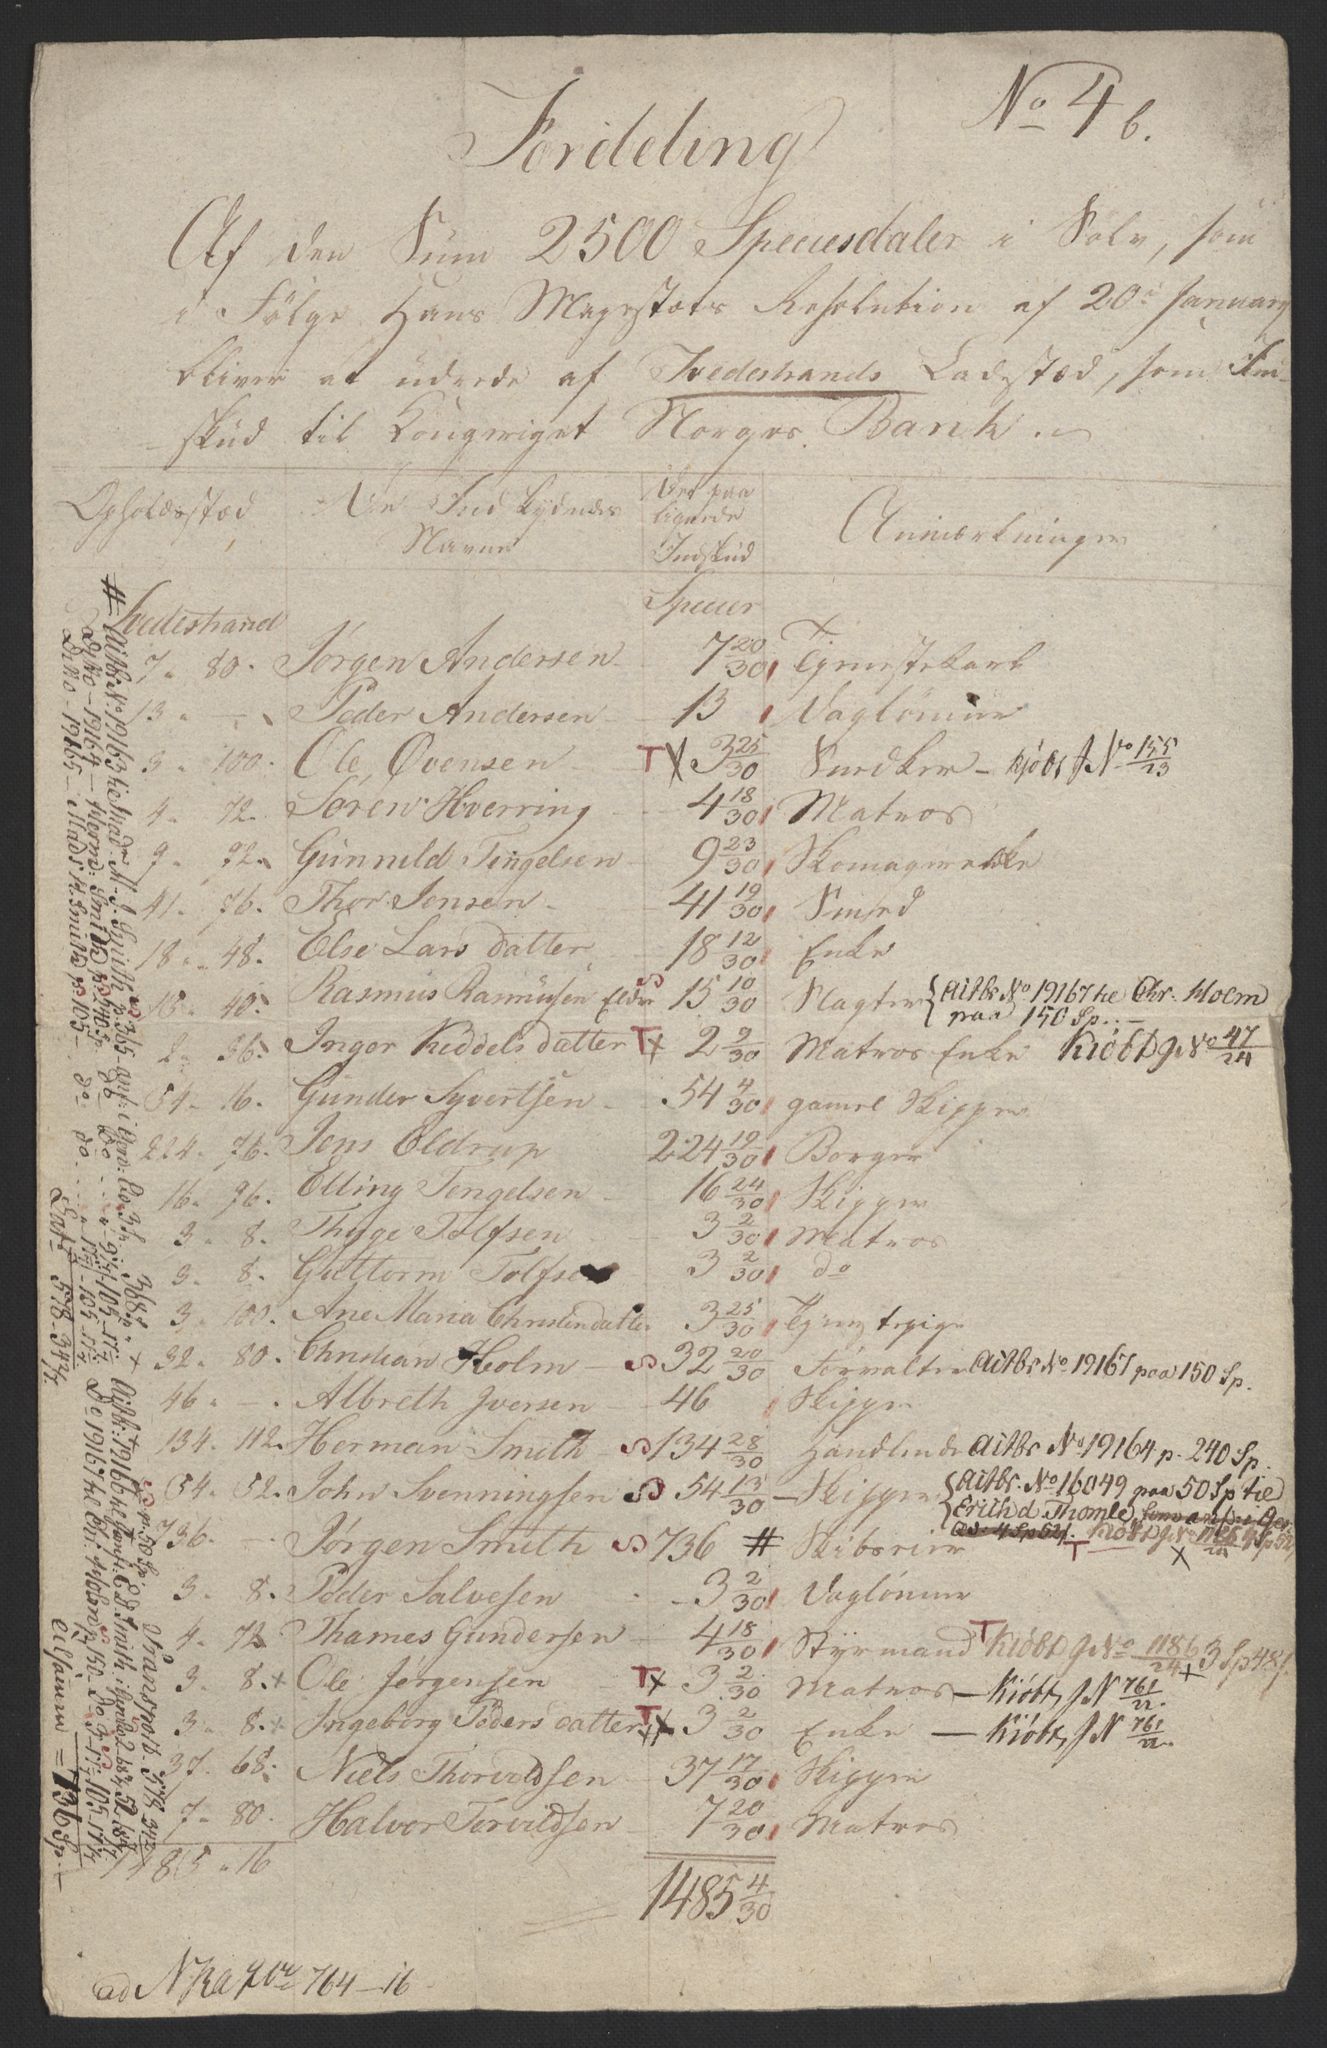 No 4 b.
Fordeling
Af den Sum 2500 Speciesdaler i Sølv, som
i Følge Hans Majestæts Resolution af 20de January
bliver at udrede af Tvedestrands Ladestæd, som Ind-
skud til Kongeriget Norges Bank.
Opholdsstæd
De Indskydendes Navne
Det paa lignede Indskud
Anmærkninger
Tvedestrand
Species
7 - 80. Jørgen Andersen 7 20/30 Tjenestekarl
13 - Peder Andersen 13 Daglønner
3 - 100. Ole Øvensen T X 3 25/30 Snedker - kjøbt J No 155/23
4 - 72. Søren Hverring 4 18/30 Matros
9 - 92. Gunnuld Tengelsen 9 23/30 Skomager
41 - 76. Thor Jensen 41 19/30 Smed
18 - 48. Else Lars datter 18 12/30 Enke
15 - 40. Rasmus Rasmussen Eldre S 15 10/30 Slagter { Actbr No 19167 til Chr. Holm
paa 150 Sp.
2 - 36. Inger Keddels datter T x 2 9/30 Matros Enke Kiøbt J No 47/24
54 - 16. Gunder Syvertsen 54 4/30 gamel Skipper
224 - 76. Jens Eldrup 224 19/30 Borger
16 - 96. Elling Tengelsen 16 24/30 Skipper
3 - 8. Thyge Tolfsen 3 2/30 Matros
3 - 8. Guttorm Tolfsen 3 2/30 do
3 - 100. Ane Maria Christendatter 3 25/30 Tjenstepige
32 - 80. Christian Holm S 32 20/30 Forvalter Actbr No 19167 paa 150 Sp.
46 - Albreth Iversen 46 Skipper
134 - 112. Herman Smith S 134 28/30 Handlende Actbr No 19164 p. 240 Sp.
54 - 52. John Svenningsen S 54 13/30 Skipper { Actbr. No 16049 paa 50 Sp til
Erich d Thomle
736 - Jørgen Smith S 736 # Skibsreder T Kiøbt J No
3 - 8. Peder Salvesen 3 2/30 Daglønner
4 - 72 Thames Gundersen 4 18/30 Styrmand T Kiøbt J No 1186/24 + 3 Sp 48
3 - 8. + Ole Jørgensen T x 3 2/30 Matros - Kiøbt, J N 761/22.
3 - 8. + Ingeborg Peders datter T x 3 2/30 Enke - Kiøbt, J N 761/22.
37 - 68. Niels Thorvoldsen 37 17/30 Skipper
7 - 80. Halvor Torvildsen 7 20/30 Matros
1485 - 16
1485 4/30
ad N 764 - 16
# Actbr No 19163 Smith p. 365
Ditto - 19164 - Herm: Smith p. 240 Sp.
Ditto - 19165 - Mads H. Smith p. 105 - do do
Transport 578
tilsamm = 736 Sp.